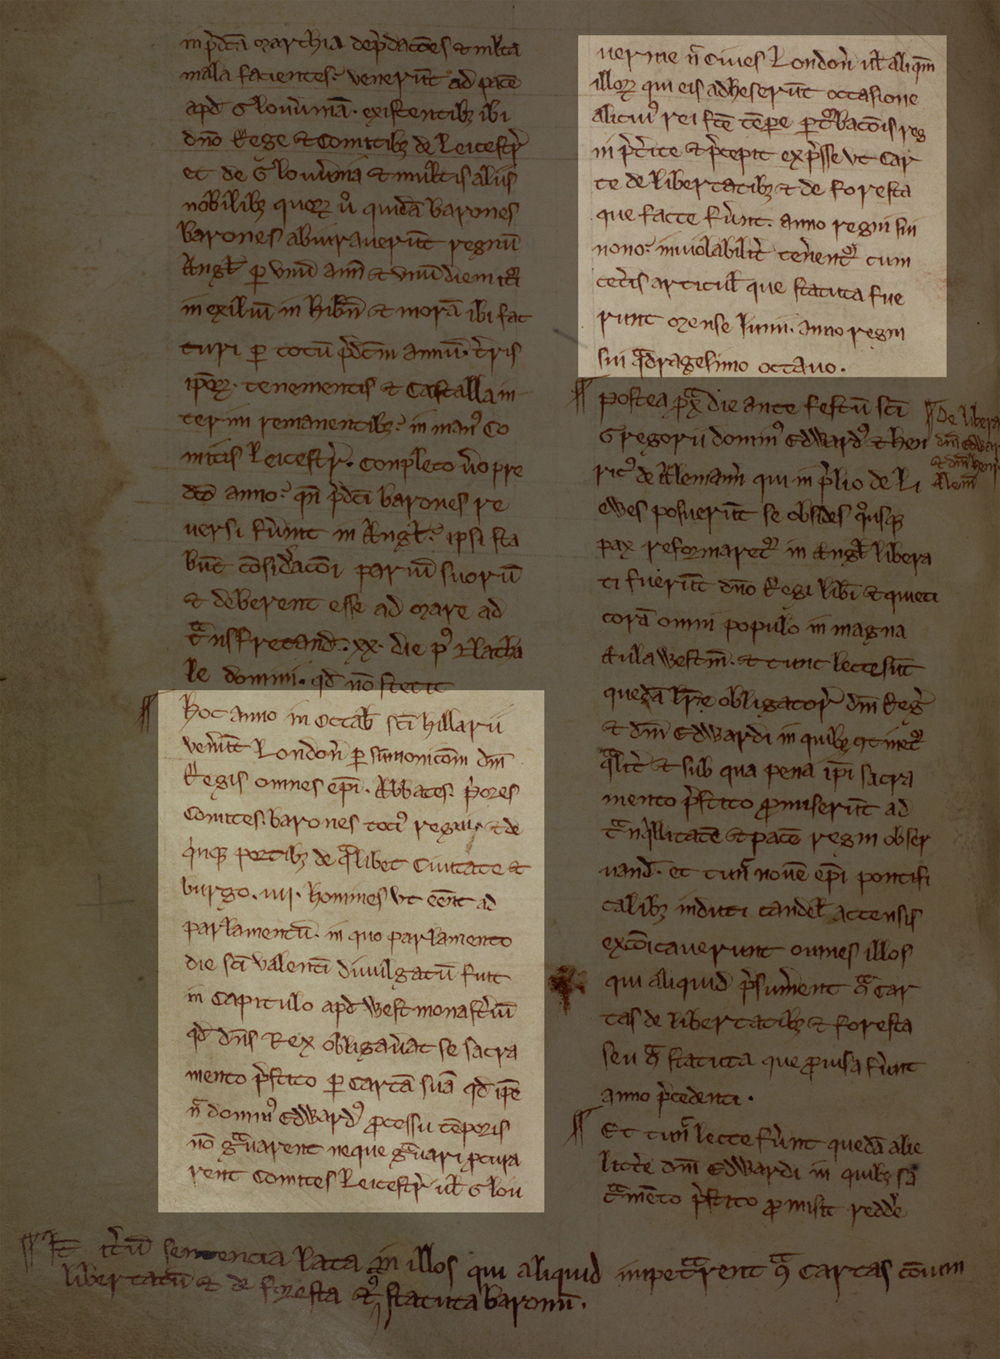 in p̄dc̄a marchia dep̄dac̄oes ⁊ ml̄ta
mala facientes venerūt ad pacē
apđ Glouv̄niam̄ existentib; ibi
dn̄o Rege ⁊ Comitib; de Leicestr̄
et de Glouv̄nia ⁊ multis aliis
nobilib; quoꝝ u̓ quidā barones
barones abiuraverūt regnū
Angł ꝑ vnū ann̄ ⁊ vnū diem
in exiliū in Hib̄n ⁊ morā ibi fac
turi ꝑ totū p̄dc̄m annū t̓ris
ip̄oꝝ tenementis ⁊ Castall in
terim remanentib; in man᷒ Co
mitis Leicestr̄. Conpleto v̄o pre
dc̄o anno qn̄ p̄dc̄i barones re
versi fūnt in Angł ipsi sta
būt c̄osid̓ac̄oni pariū suorū
⁊ deberent esse ad mare ad
tᵃnsfretand xx die p᷒ Natha
le domini qđ nō stetit
hoc anno in Octab̄ sc̄i hillarii
ven̄ūt Londoñ ꝑ sūmonic̄om dn̄i
Regis omnes ep̄i. Abbates. p̓ores
Comites. barones toti᷒ regni. ⁊ de
qⁱnq; portib; de qᵃlibet Ciuitate ⁊
burgo. iiii. homines vt eēnt ad
parlamentū. in quo parlamento
die sc̄i valentī diuulgatū fuit
in Capitulo apđ westmonast̓iū
qđ dn̄s Rex obligav̓at se sacra
mento p̓stito ꝑ cartā suā qđ ip̄e
n̄ domin᷒ Edward᷒ ꝓcessu tēporis
nō gᵃuarent neque gᵃuari ꝓcura
rent Comites Leicestr̄ ul̄ Glou
uernie n̄ Ciues Londoñ ul̄ aliqm̄
illoꝝ qui eis adheserūt occasione
alicui᷒ rei fc̄e tēpe ꝑtᵘbac̄ois reg
ni p̓cipit ex p̄sse vt Car
te de libertatib; ⁊ de foresta
que facte fūnt. anno regni sui
nono. inuiolabilit̓ ten̓ent᷒ cum
cet̓is articul̄ que statuta fue
runt mense Iunii. anno regni
sui qᵃdragesimo octauo.
¶ postea ꝓxᵃ die ante festū sc̄i
Gregorii domin᷒ Edward᷒ ⁊ hen
ric᷒ de Alemann̄ qui in p̓lio de L
ewes posuerūt se obsides qᵒusq;
pax reformaret᷒ in Angł libera
ti fuerūt dn̄o Regi lib̄i ⁊ quieti
corā omni populo in magna
Aula westm̄. ⁊ tunc lecte sūt
quedā lr̄e obligator̄ dn̄i Reg̓
⁊ dn̄i Edwardi in quib; 9tinet᷒
qᵃlit̓ ⁊ sub qua pena ip̄i sacra
mento p̓stito ꝓmiserūt ad
tᵃnqⁱllitatē ⁊ pacē regni obser
uand̄. et tunc nouē ep̄i pontifi
calib; induti candel̄ accensis
exc̄oicauerunt omnes illos
qui aliquid p̓sum̓ent 9ᵃ Car
tas de libertatib; ⁊ foresta
seu 9ᵃ statuta que ꝓuisa fūnt
anno p̓cedenti.
¶ Et tunc lecte fūnt quedā alie
litt̓e dn̄i Edwardi in quib; sa
cᵃmēto p̓stito ꝓmisit redd̓e
¶ De libera
dn̄i Edwar
⁊ dn̄i henr
Alem̄
sentencia lata in illos qui aliquid impetᵃrent 9ᵃ Cartas cōmm
libertatū ⁊ de foresta ⁊ 9ᵃ statuta baronū.